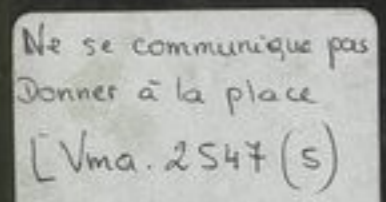 Ne se communique pas
Donner à la place
[Vma. 2547 (5)